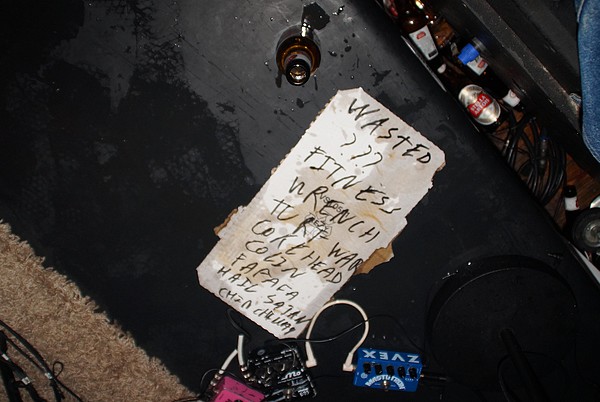 WASTED
???
FITNESS
WRENCH
TURF WAR
COKEHEAD
COLIN
FAPAFA
HAIL SAJAN
ZVEX